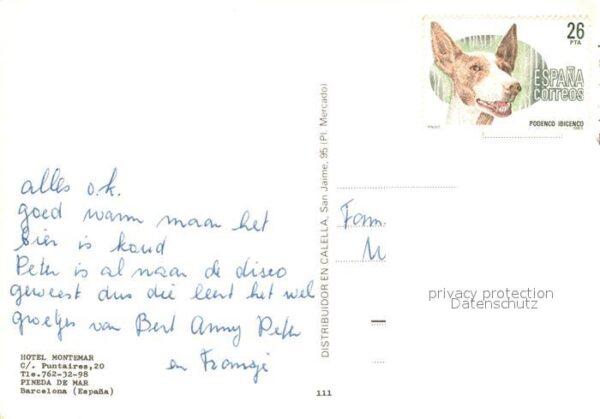 26
PTA
ESPAÑA
correos
PODENCO IBICENCO
alles o.k.
goed warm maar het
bier is koud
Peter is al naar de disco
geweest dus die leert het wel
groetjes van Bert Anny Peter
en Fransje
HOTEL MONTEMAR
C/. Puntaires,20
Tle.762-32-98
PINEDA DE MAR
Barcelona (España)
DISTRIBUIDOR EN CALELLA, San Jaime, 95 (Pl. Mercado)
111
Fam.
privacy protection
Datenschutz